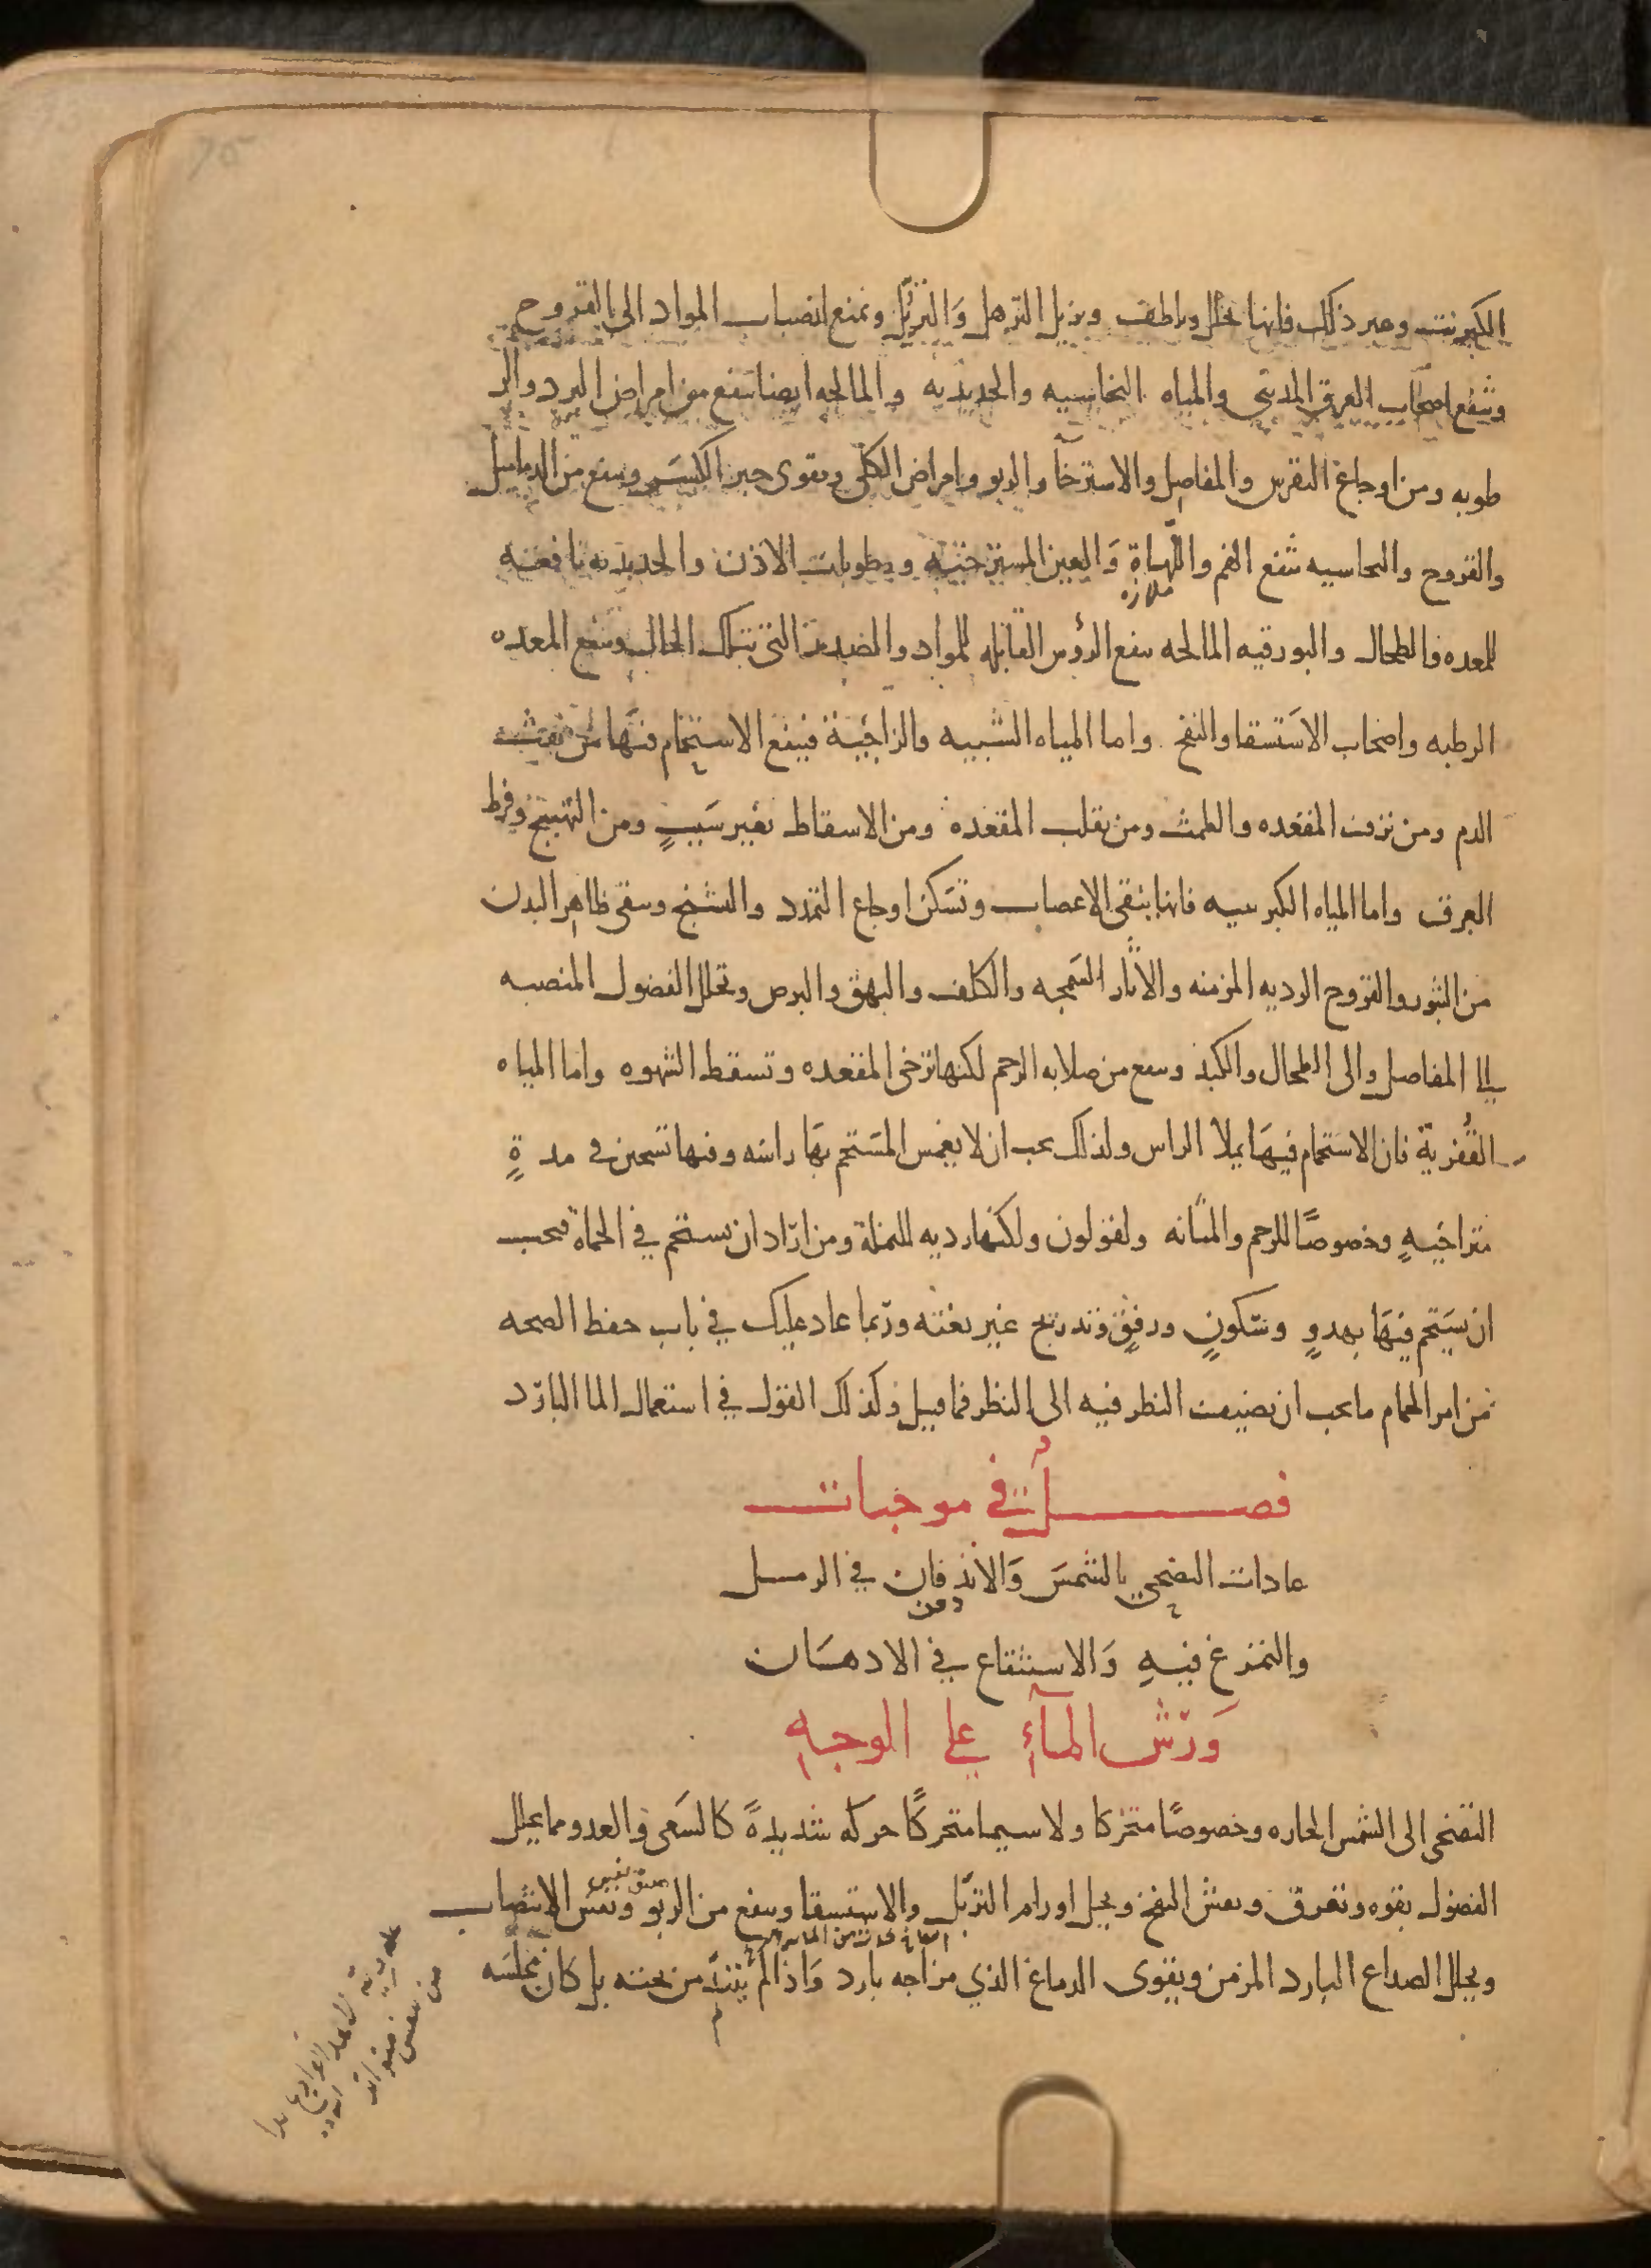 الكبريت وغير ذلك فانها تحلل وتلطف وتزيل الترهل وَالتربّل وتمنع انصباب المواد الى القروح
وتنفع اصحاب العرق المديني والمياه النحاسيه والحديديه والمالحه ايضا تنفع من امراض البرد والر
طوبه ومن اوجاع النقرس والمفاصل والاسترخآ والربو وامراض الكلى وتقوى جبر الكسَر وتنفع من الدماميل
والقروح والنحاسيه تنفع الفم واللّهاة وَالعين المسترخيه ورطوبات الاذن والحديديه نافعه
للمعده والطحال والبورقيه المالحه تنفع الرؤس القابله للمواد والصدر الذى بتلك الحال وتنفع المعده
الرطبه واصحاب الاستسقا والنفخ واما المياه الشبيه والزاجيّة فينفع الاستحمام فيَها من نفث
الدم ومن نزف المقعده والطمث ومن تقلب المقعده ومن الاسقاط بغير سَببٍ ومن التهيج وفرط
العرق واما المياه الكبريتيه فانها تنقى الاعصاب وتسَكن اوجاع التمدد والتشنج وتنقى ظاهر البدن
من البثور والقروح الرديه المزمنه والاثار السَمجه والكلف والبهق والبرص وتحلل الفضول المنصبه
الى المفاصل والى الطحال والكبد وتنفع من صلابه الرحم لكنها ترخى المقعده وتسقط الشهوه واما المياه
القُفريّة فان الاستحمام فيهَا يملا الراس ولذلك يجب ان لا يغمس المسَتحم بهَا راسَه وفيها تسخين في مدةٍ
متراخيهٍ وخصوصًا للرحم والمثانه ولقولون ولكنها رديه للنملة ومن ارَاد ان يستحم في الحماة فيجب
ان يسَتحم فيهَا بهدوٍ وسَكونٍ ورفقٍ وتدريج غير بغته وربّما عاد عليك في باب حفظ الصحه
من امر الحمام ما يجب ان يضيف النظر فيه الى النظر فيما قيل وكذلك القول في استعمال الما البارَد
فصــــلٌ في موجبات
عادات التضحي بالشمسَ وَالاندفان في الرمل
دفن
والتمرغ فيهِ وَالاستنقاع في الادهَان
وَرشّ المآءِ على الوجهِ
التضحى الى الشمس الحاره وخصوصًا متحركا ولا سيما متحركًا حركه شديدةً كالسَعى والعدو مما يحلل
الفضول بقوه وتعرق وتفش النفخ ويحلل اورام التربّل والاستسقا وينفع من الربو ونفس الانتصاب
ويحلل الصداع البارد المزمن ويقوى الدماغ الذي مزاجه بارد وَاذا لم يبتلّ من تحته بل كان مجلسَه